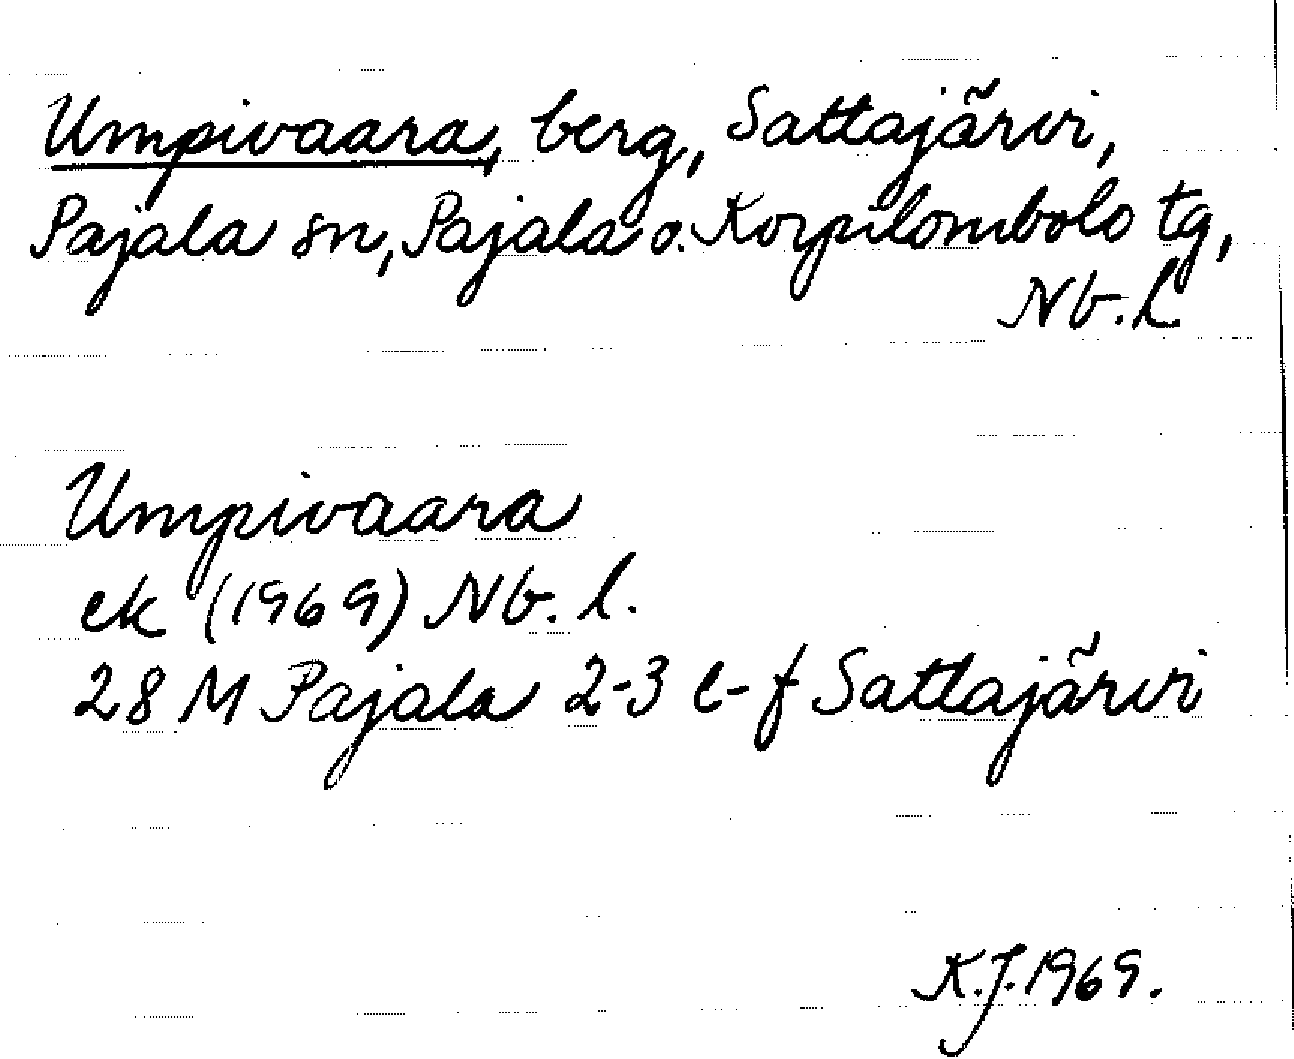 Umpivaara, berg, Sattajärvi,
Pajala sn, Pajala o. Korpilombolo tg,
Nb. l.
Umpivaara
ek (1969) Nb. l.
28 M Pajala 2-3 e-f Sattajärvi
K.J. 1969.